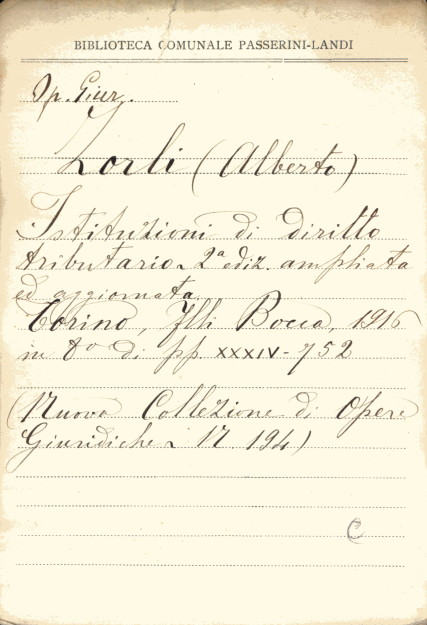 BIBLIOTECA COMUNALE PASSERINI-LANDI
Op. Giur.
Zorli (Alberto)
Istituzioni di diritto
tributario ~ 2ª ediz. ampliata
ed aggiornata
Torino, Flli Bocca, 1916
in 8º di pp. XXXIV - 752
(Nuova Collezione di Opere
Giuridiche ~ N. 194)
C